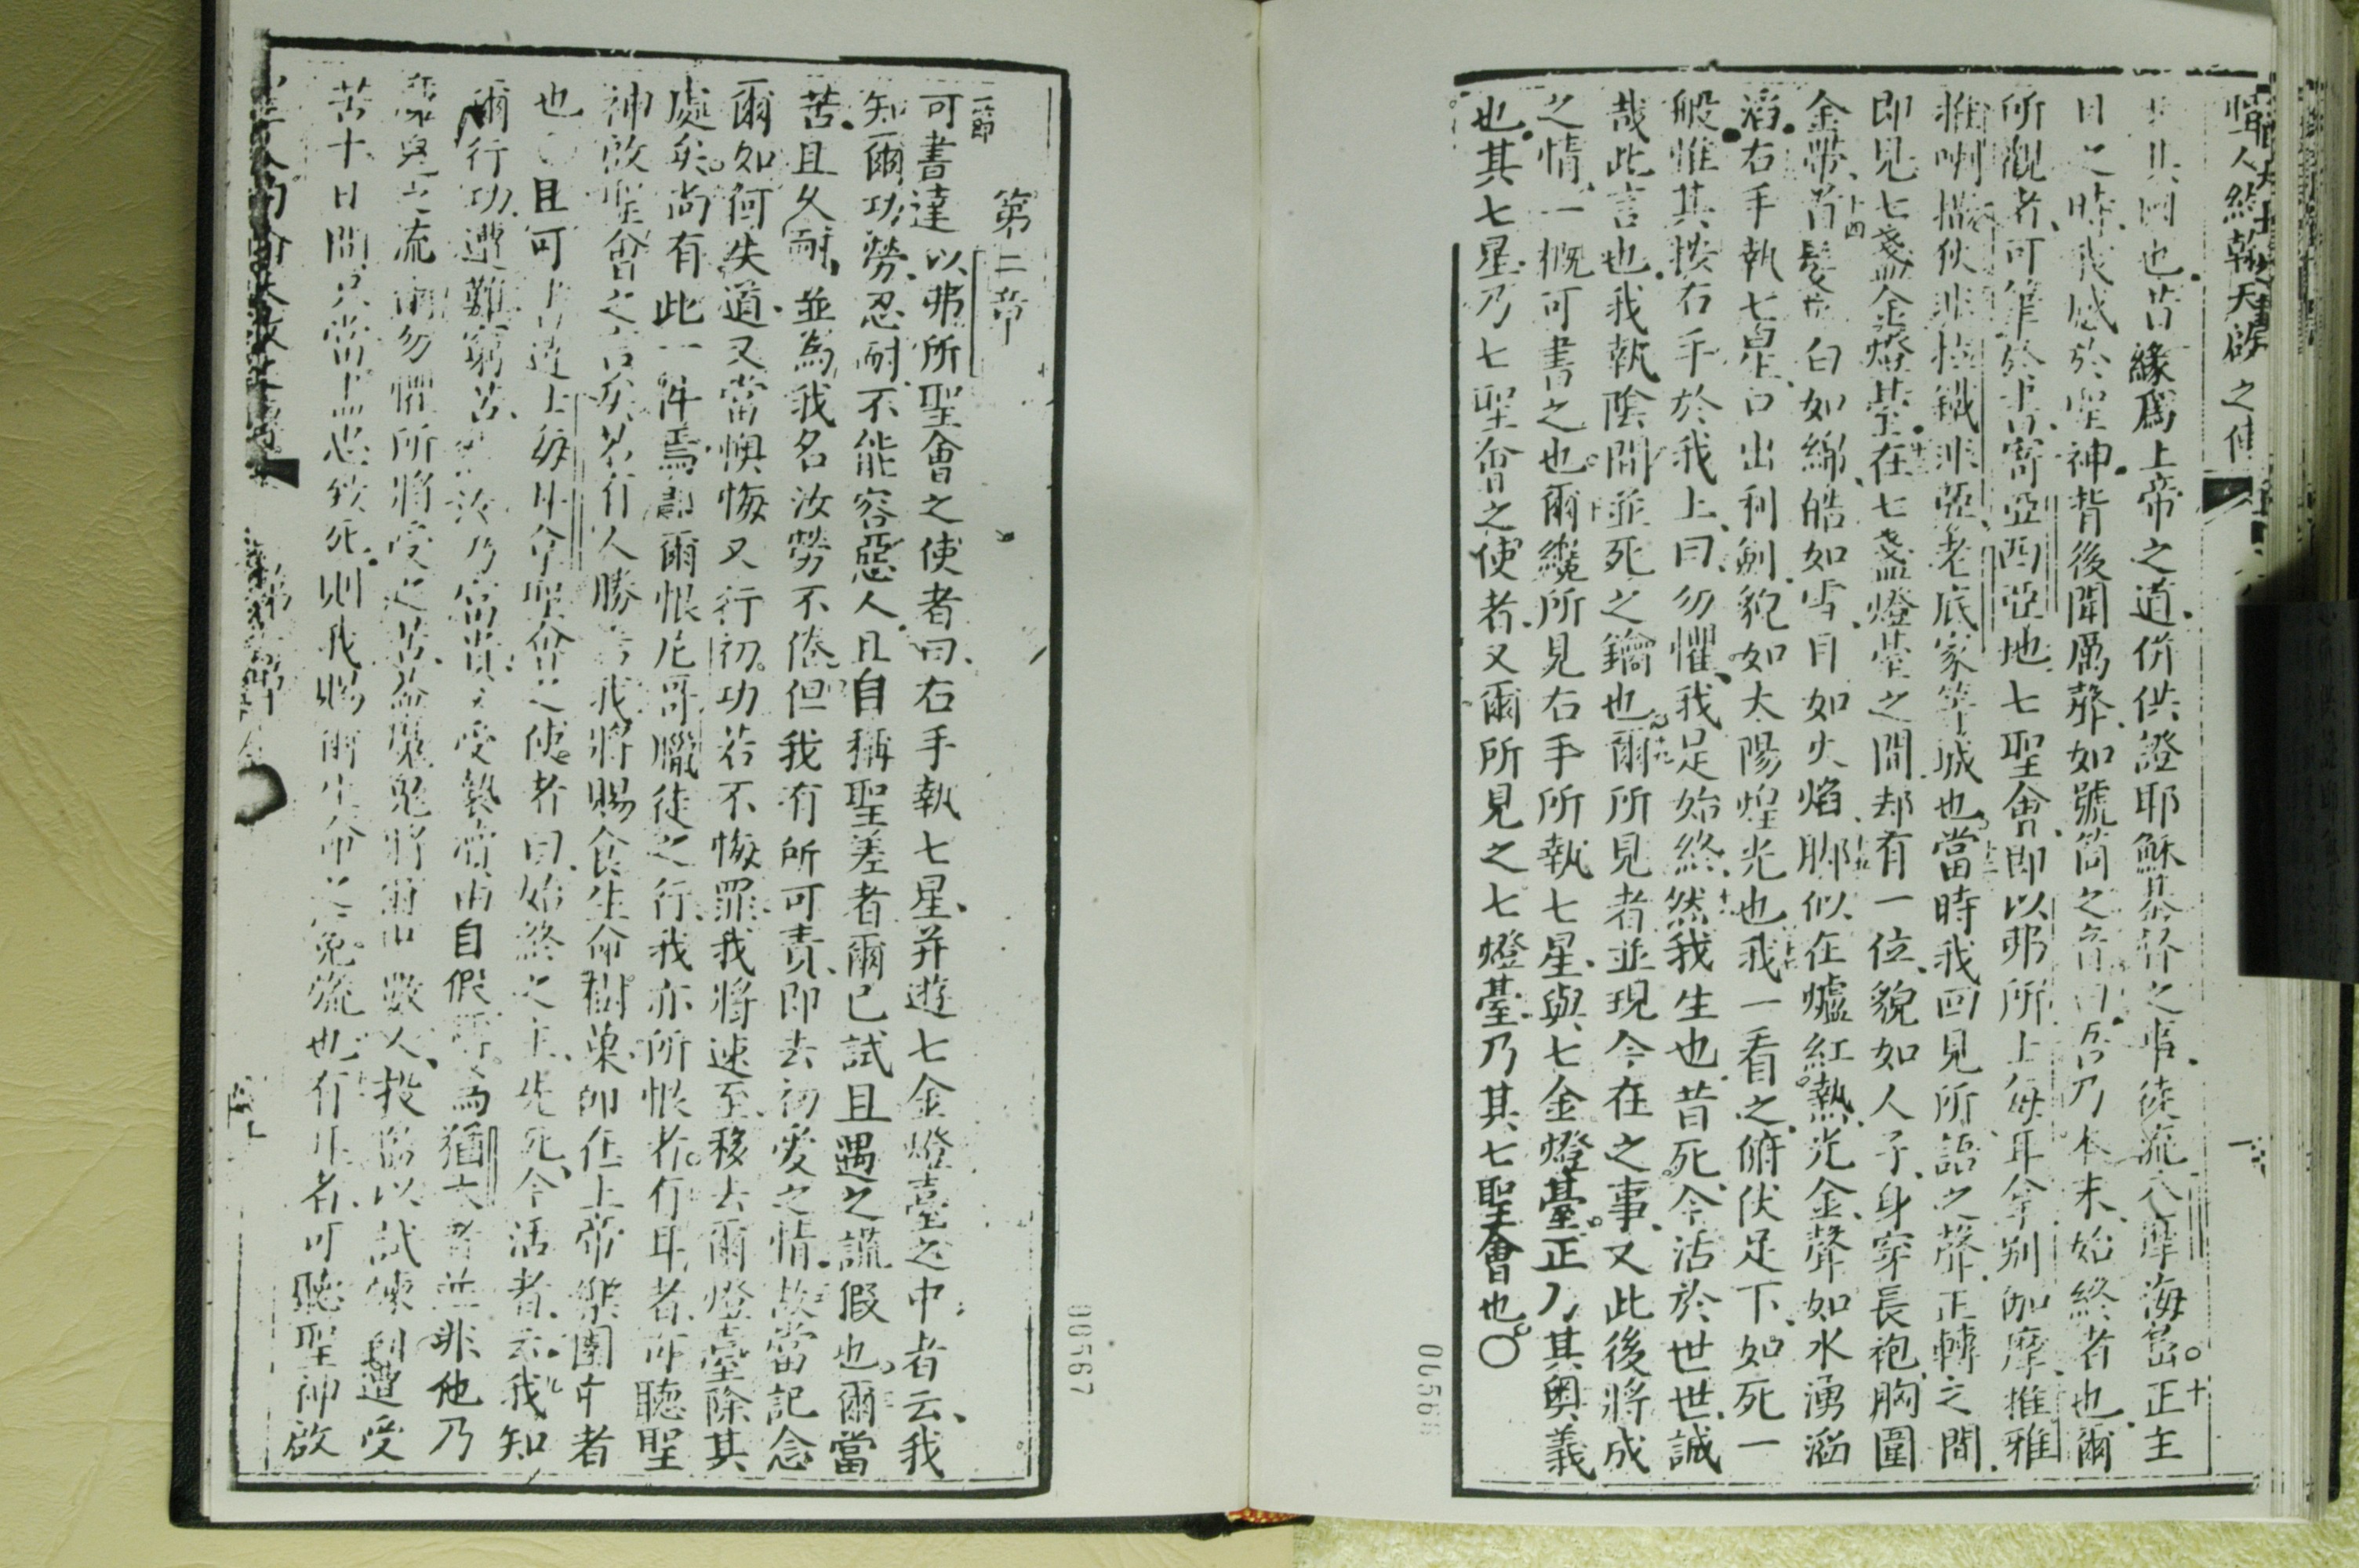 惟人然翰天啟之傳
其國也昔緣爲上帝之道併供證耶穌基督之事徒流入摩海島正主
日之時我感於聖神背後聞厲聲如號筒之音曰吾乃本末始終者也爾
所觀者可筆於書寄亞西亞地七聖會即以弗所上每耳拿別伽摩推雅
推喇撒伙非拉鐵非亞老底家等城也當時我回見所語之聲正轉之間
即見七盞金燈臺在七盞燈臺之間却有一位貌如人子身穿長袍胸圍
金帶首髮白如綿皓如雪目如火焰脚似在爐紅熱光金聲如水湧滔
滔右手執七星口出利劍貌如太陽煌光也我一看之俯伏足下如死一
般惟其按右手於我上曰勿懼我足始終然我生也昔死今活於世世誠
哉此言也我執陰間並死之鑰也爾所見者並現今在之事又此後將成
之情一概可書之也爾纔所見右手所執七星與七金燈臺正乃其奧義
也其七星乃七聖會之使者又爾所見之七燈臺乃其七聖會也〇
00566
第二章
一節
可書達以弗所聖會之使者曰右手執七星并遊七金燈臺之中者云我
知爾功勞忍耐不能容惡人且自稱聖差者爾已試且遇之謊假也爾當
苦且久耐並為我名汝勞不倦但我有所可責即去初愛之情故當記念
爾如何失道又當懊悔又行初功若不悔罪我將速至移去爾燈臺除其
處矣尚有此一件焉爾恨尼哥臘徒之行我亦所恨者有耳者可聽聖
神啟聖會之言矣若有人勝者我將賜食生命樹菓即在上帝樂園中者
也〇且可書達上每耳拿聖會之使者曰始終之主先死今活者云我知
爾行功遭難窮苦汝乃富貴又受褻瀆由自假稱為猶太者並非他乃
魔鬼之流爾勿懼所將受之苦蓋魔鬼將爾中數人投監以試煉則遭受
苦十日間只當盡忠致死則我賜爾生命之冕旒也有耳者可聽聖神啟
00567